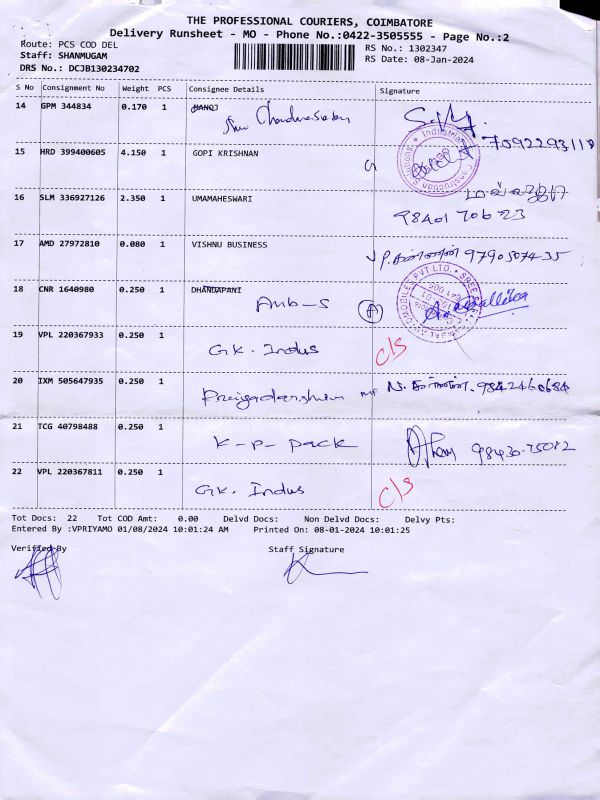 THE PROFESSIONAL COURIERS, COIMBATORE
Delivery Runsheet - MO - Phone No.:0422-3505555 - Page No.:2
Route: PCS COD DEL
RS No.: 1302347
Staff: SHANMUGAM
RS Date: 08-Jan-2024
DRS No.: DCJB130234702
S No Consignment No Weight PCS Consignee Details Signature
14 GPM 344834 0.170 1 MANOJ
7092293118
15 HRD 399400605 4.150 1 GOPI KRISHNAN
16 SLM 336927126 2.350 1 UMAMAHESWARI
98401 70623
17 AMD 27972810 0.080 1 VISHNU BUSINESS
18 CNR 1640980 0.250 1 DHANDAPANI
Anb-S A
19 VPL 220367933 0.250 1
GK. Indus C/S
20 IXM 505647935 0.250 1
9842460684
21 TCG 40798488 0.250 1
K-P-Pack 98430-75012
22 VPL 220367811 0.250 1
GK. Indus C/S
Tot Docs: 22 Tot COD Amt: 0.00 Delvd Docs: Non Delvd Docs: Delvy Pts:
Entered By :VPRIYAMO 01/08/2024 10:01:24 AM Printed On: 08-01-2024 10:01:25
Verified By Staff Signature